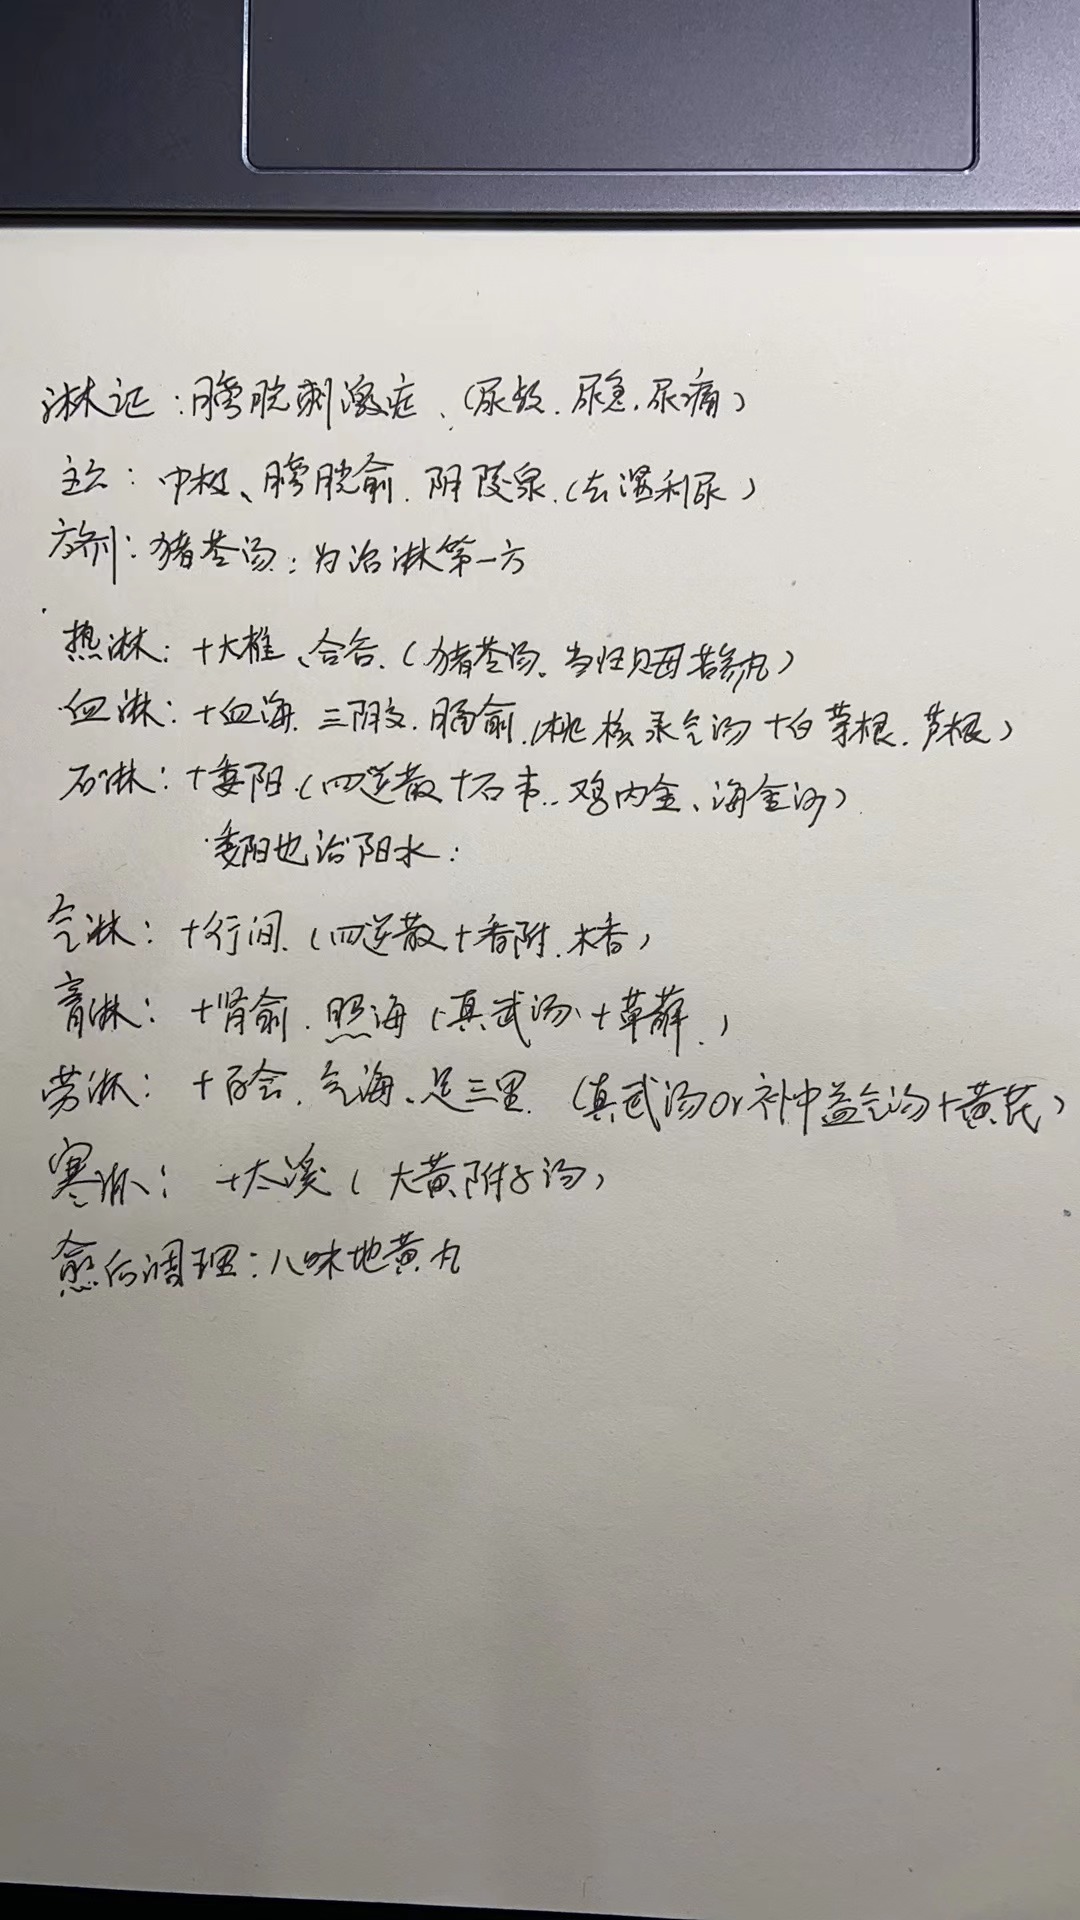 淋证：膀胱刺激症、(尿频、尿急、尿痛)
主穴：中极、膀胱俞、阴陵泉、(去湿利尿)
方剂：猪苓汤：为治淋第一方
热淋：+大椎、合谷、(猪苓汤、当归贝母苦参丸)
血淋：+血海、三阴交、膈俞、(桃核承气汤+白茅根、芦根)
石淋：+委阳、(四逆散+石韦、鸡内金、海金沙)
委阳也治阳水：
气淋：+行间、(四逆散+香附、木香)
膏淋：+肾俞、照海(真武汤+萆薢、)
劳淋：+百会、气海、足三里、(真武汤or补中益气汤+黄芪)
寒淋：+太溪(大黄附子汤)
愈后调理：八味地黄丸